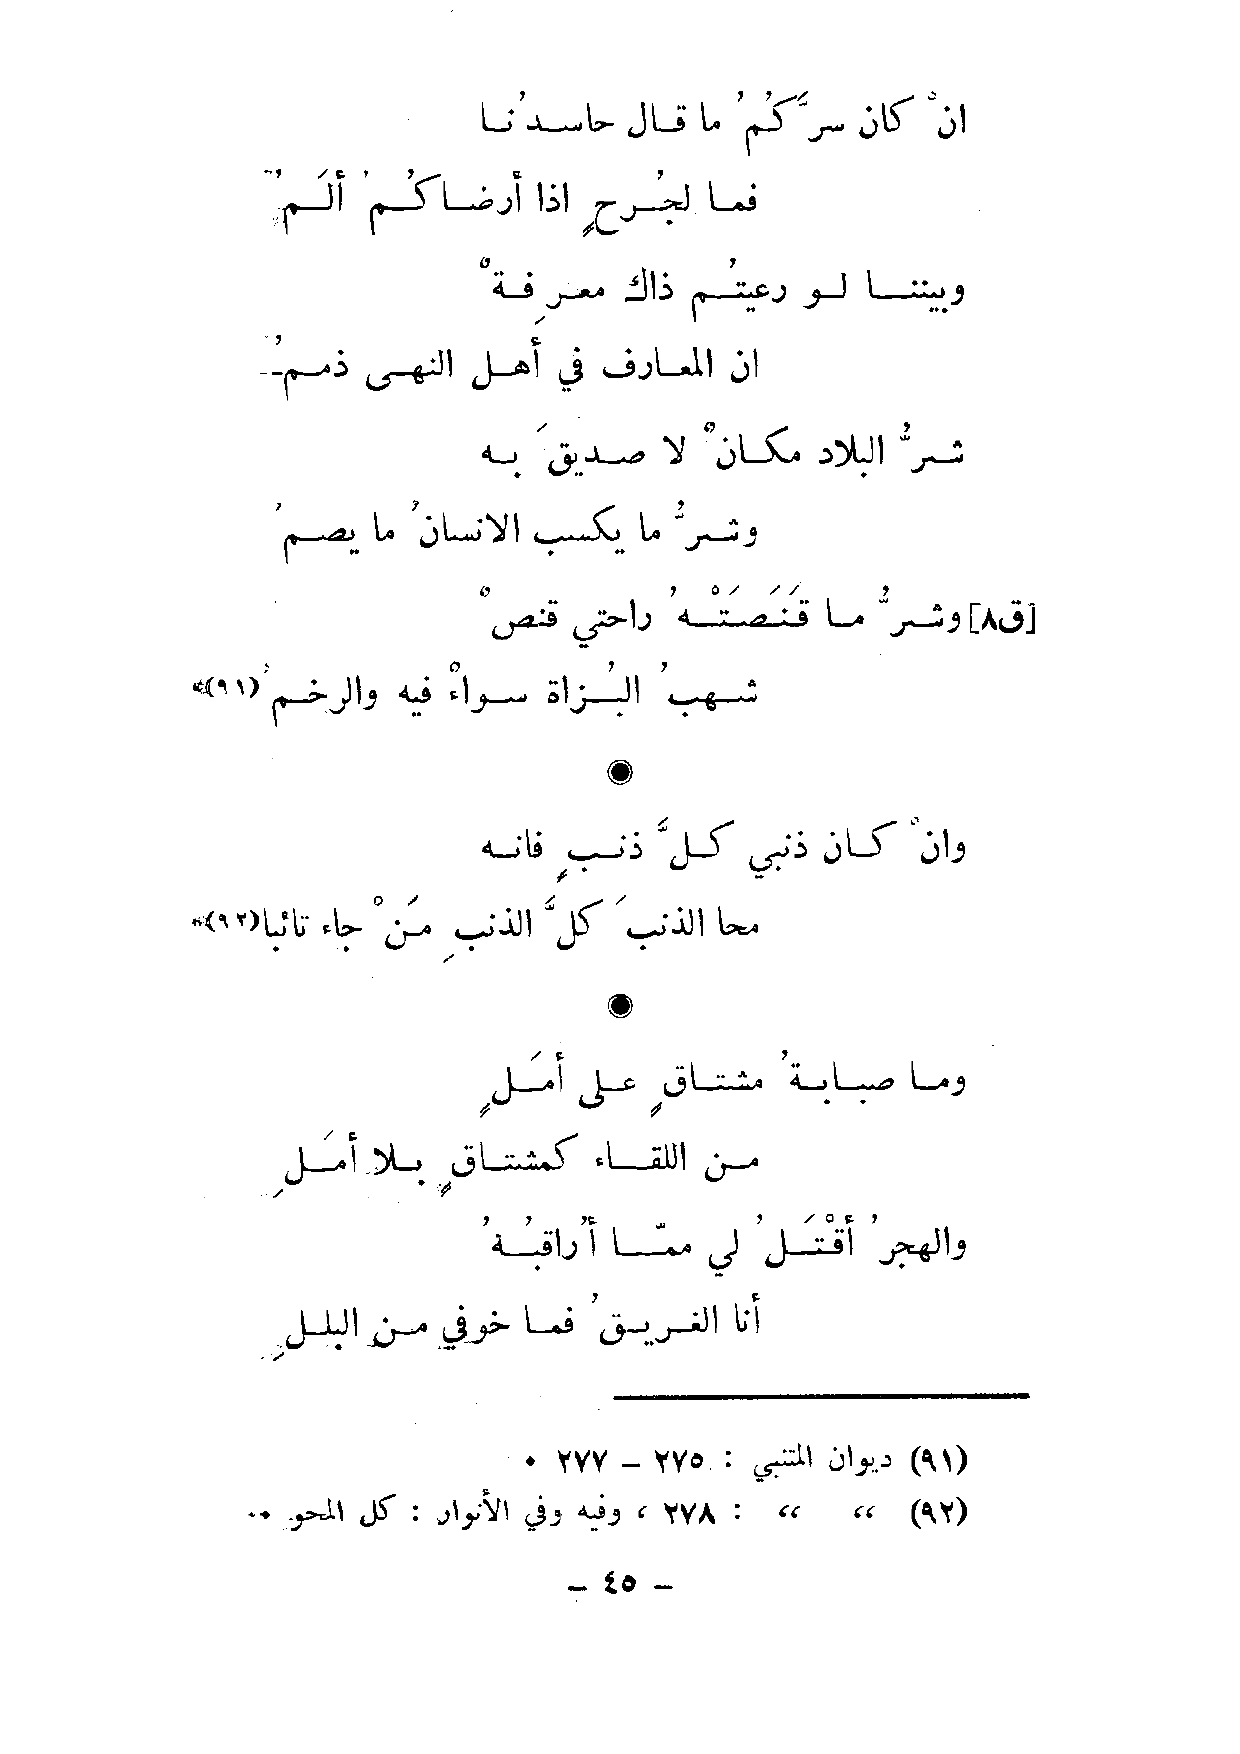 انْ كان سرَّكُمُ ما قال حاسدُنا
فما لجُرحٍ اذا أرضاكُمُ أَلَمُ
وبيننا لو رعيتُم ذاك معرِفةٌ
ان المعارف في أهل النهى ذممُ
شرُّ البلاد مكانٌ لا صديقَ به
وشرُّ ما يكسب الانسانُ ما يصمُ
[ق٨] وشرُّ ما قَنَصَتْهُ راحتي قنصٌ
شهبُ البُزاة سواءٌ فيه والرخمُ(٩١)*
وانْ كان ذنبي كلَّ ذنبٍ فانه
محا الذنبَ كلَّ الذنبِ مَنْ جاء تائبا(٩٢)*
وما صبابةُ مشتاقٍ على أمَلٍ
من اللقاء كمشتاقٍ بلا أمَلِ
والهجرُ أقْتَلُ لي ممّا أُراقبُهُ
أنا الغريقُ فما خوفي من البللِ
(٩١) ديوان المتنبي : ٢٧٥ – ٢٧٧ ٠
(٩٢) “ “ : ٢٧٨ ، وفيه وفي الأنوار : كل المحو ٠٠
– ٤٥ –